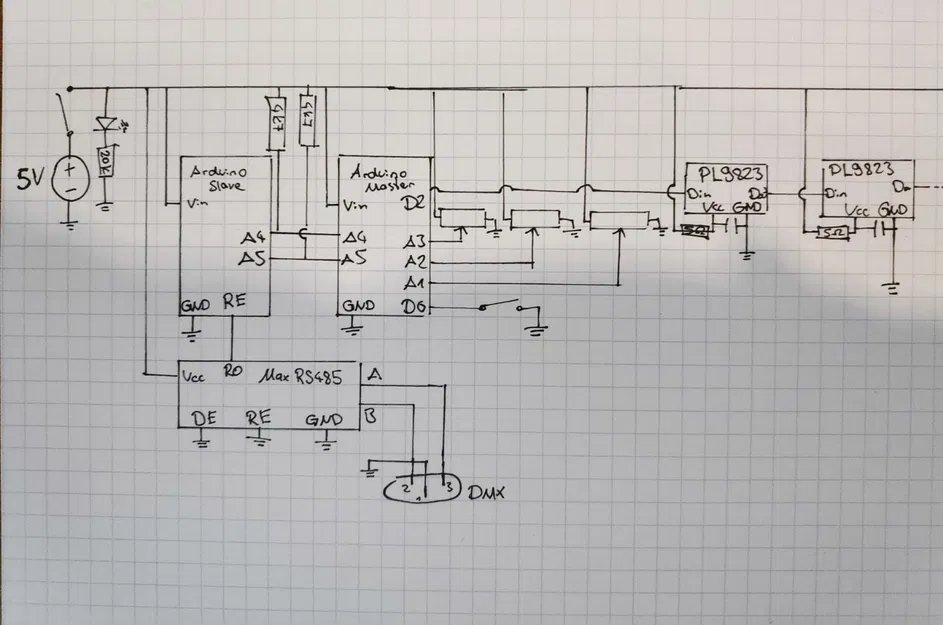 5V
+
−
20k
4k7
4k7
Arduino
Slave
Vin
A4
A5
GND RE
Arduino
Master
D2
Vin
A4
A3
A5
A2
A1
GND
D6
PL9823
Din
Do
Vcc GND
5Ω
PL9823
Din
Do
Vcc GND
5Ω
Vcc RO Max RS485 A
DE RE GND B
2 1 3 DMX